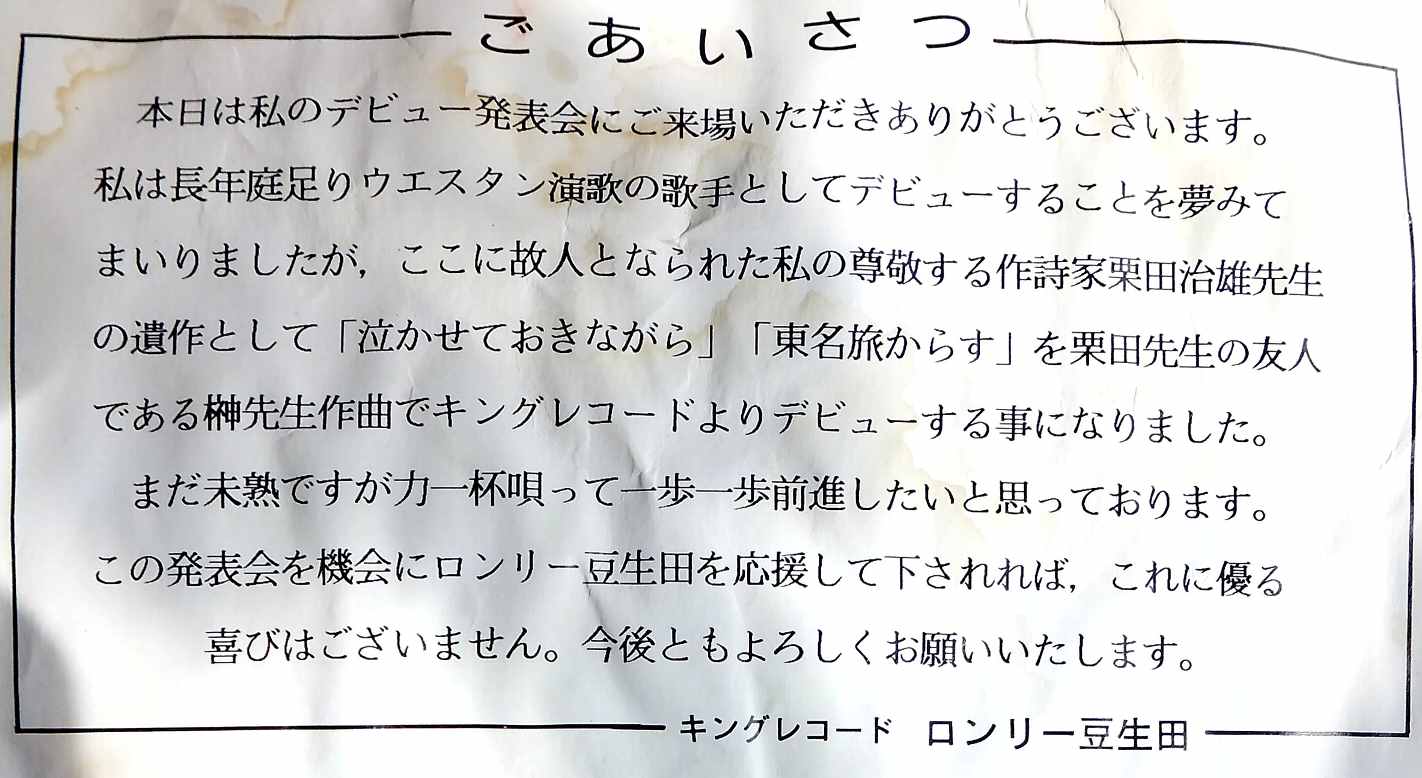 ごあいさつ
本日は私のデビュー発表会にご来場いただきありがとうございます。
私は長年庭足りウエスタン演歌の歌手としてデビューすることを夢みて
まいりましたが，ここに故人となられた私の尊敬する作詩家栗田治雄先生
の遺作として「泣かせておきながら」「東名旅からす」を栗田先生の友人
である榊先生作曲でキングレコードよりデビューする事になりました。
まだ未熟ですが力一杯唄って一歩一歩前進したいと思っております。
この発表会を機会にロンリー豆生田を応援して下されれば，これに優る
喜びはございません。今後ともよろしくお願いいたします。
キングレコード ロンリー豆生田